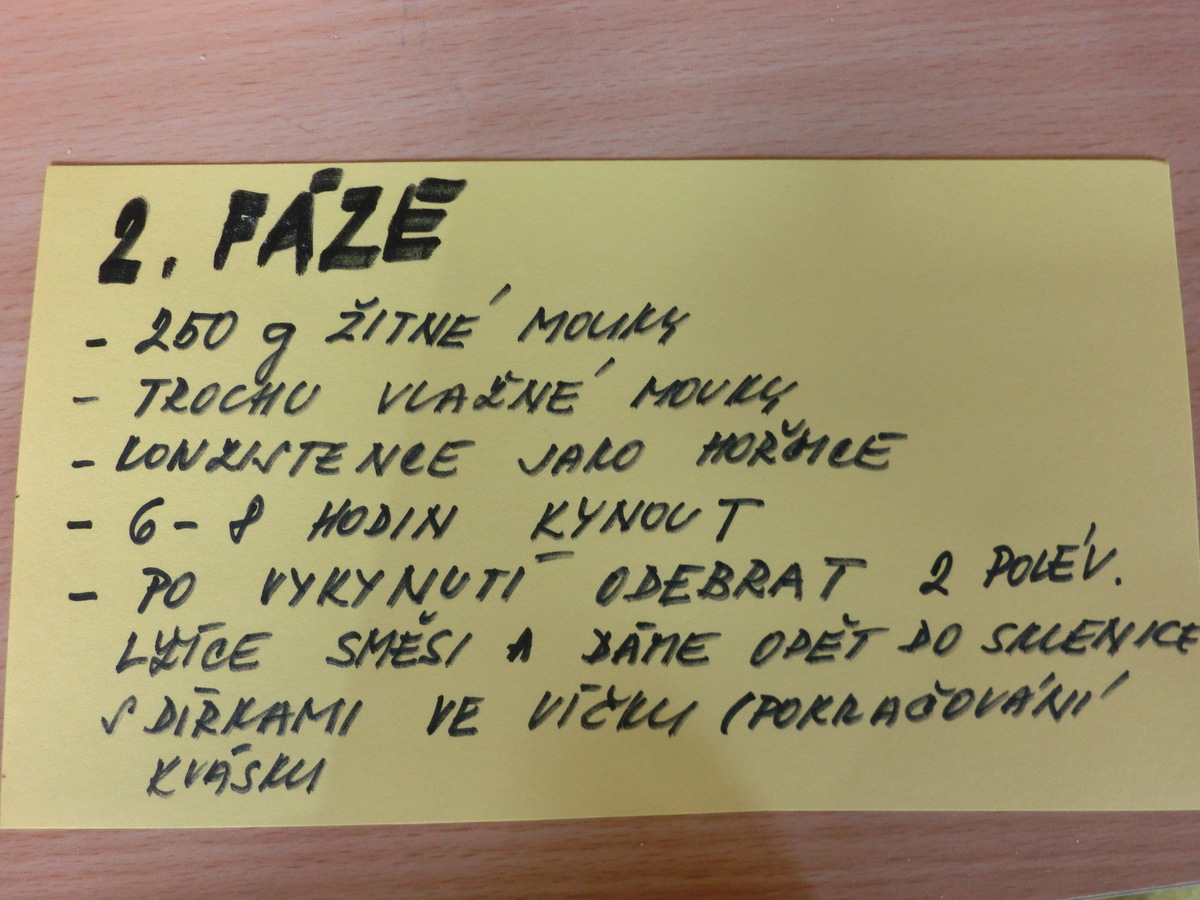 2. FÁZE
- 250 g ŽITNÉ MOUKY
- TROCHU VLAŽNÉ MOUKY
- KONZISTENCE JAKO HOŘČICE
- 6-8 HODIN KYNOUT
- PO VYKYNUTÍ ODEBRAT 2 POLÉV.
LŽÍCE SMĚSI A DÁME OPĚT DO SKLENICE
S DÍRKAMI VE VÍČKU (POKRAČOVÁNÍ
KVÁSKU